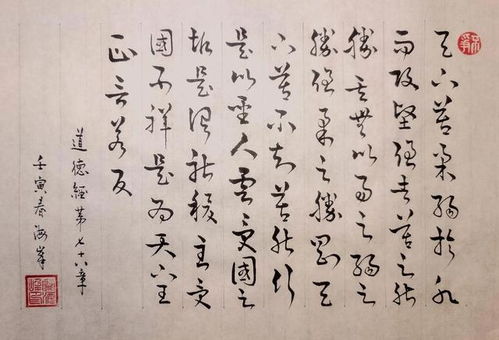 天下莫柔弱於水
而攻堅強者莫之能
勝其無以易之弱之
勝強柔之勝剛天
下莫不知莫能行
是以聖人雲受國之
垢是謂社稷主受
國不祥是為天下王
正言若反
道德經第七十八章
壬寅春海峯